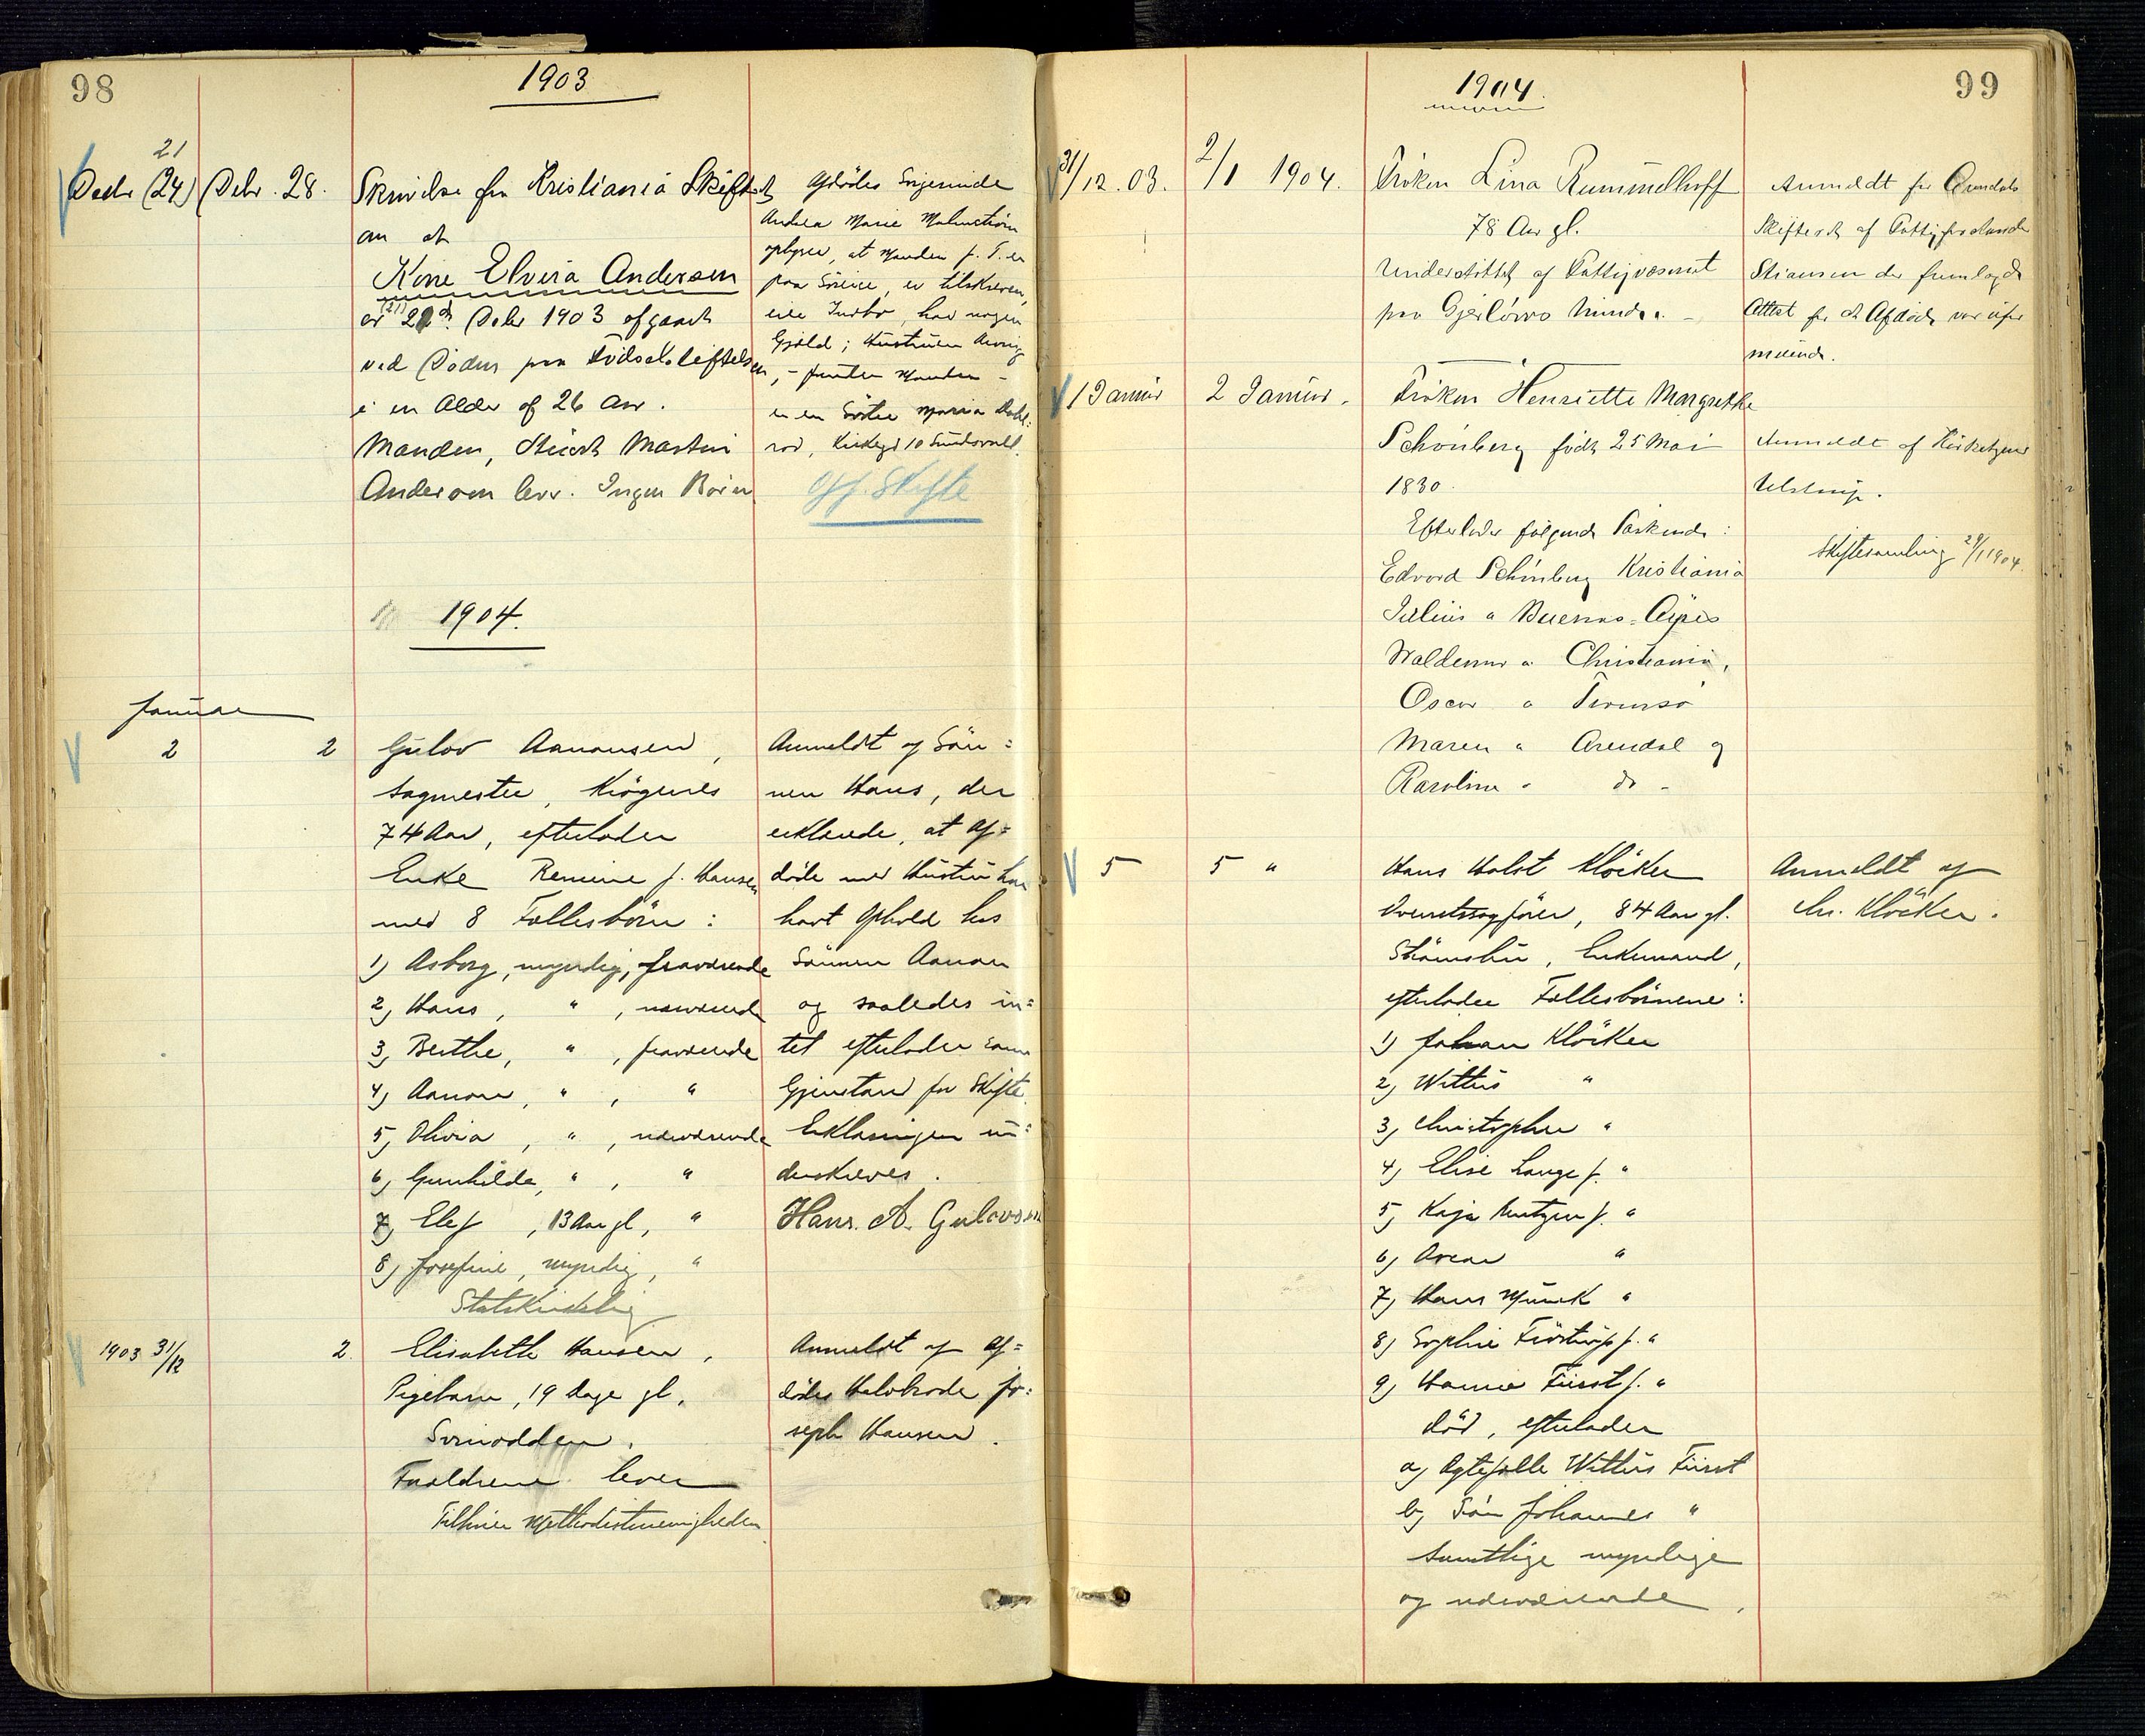 98
1903
21
Decbr (24)
Debr. 28.
Skrivelse fra Kristiania Skifteret
om at
Kone Elvira Andersen
(21)
er 22d Debr 1903 afgaaet
ved Døden paa Fødselsstiftelsen
i en Alder af 26 Aar.
Manden, Stuert Martin
Andersen lever. Ingen Børn
Afdødes Svigerinde
Andrea Marie Malmstrøm
oplyser, at Manden p. T. er
paa Søreise, er tilskreven,
eier Indbo, har nogen
Gjæld; Hustruens Arving
, - foruden Manden -
er en Søster Maria Dahl-
rød, Kirkegd 10 Sundsvall.
Off. Skifte
1904.
Januar
2
2
Gulov Aanonsen,
Sagmester, Krøgenes
74 Aar, efterlader
Enke Remine f. Hansen
med 8 Fællesbørn:
1) Asborg, myndig, fraværende
2) Hans, " , nærværende
3) Berthe, " , fraværende
4) Aanon, " , "
5) Olivia, " , nærværende
6) Gunhilde, " , "
7) Elef , 13 Aar gl, "
8) Josefine, myndig, "
Statskirkelig
Anmeldt af Søn=
nen Hans, der
erklærede, at Af=
døde med Hustru har
havt Ophold hos
Sønnen Aanon
og saaledes in=
tet efterlader som
Gjenstand for Skifte.
Erklæringen un=
derskreves.
Hans. A. Gulovsen
1903 31/12
2.
Elisabeth Hansen,
Pigebarn, 19 Dage gl.
Svinodden.
Forældrene lever
Tilhører Methodistmenigheden
Anmeldt af Af=
dødes Halvbroder Jo=
seph Hansen.
99
1904.
31/12. 03.
2/1 1904.
Frøken Lina Rummelhoff
78 Aar gl.
Understøttet af Fattigvæsenet
paa Gjerløws Minde. -
Anmeldt for Arendals
Skifteret af Fattigforstander
Stiansen der fremlagde
Attest for at Afdøde var ufor
muende.
1 Januar
2 Januar.
Frøken Henriette Margrethe
Schønberg født 25 Mai
1830.
Efterlader følgende Søskende:
Edvard Schønberg Kristiania
Julius " Buenos-Ayres
Waldemar " Christiania,
Oscar " Tromsø
Maren " Arendal og
Karoline " do -
Anmeldt af Kirketjener
Ulstrup.
Skiftesamling 29/1 1904.
5
5 "
Hans Holst Kløcker
Overretssagfører, 84 Aar gl.
Strømsbu, Enkemand,
efterlader Fællesbørnene:
1) Johan Kløcker
2) Wittus "
3) Christopher "
4) Elise Lange f. "
5) Kaja Arntzen f. "
6) Oscar "
7) Hans Munk "
8) Sophie Fürstrup f. "
9) Hanna Fürst f. "
død, efterlader
a) Ægtefælle Wittus Fürst
b) Søn Johannes "
Samtlige myndige
og nærværende.
Anmeldt af
Chr. Kløcker.